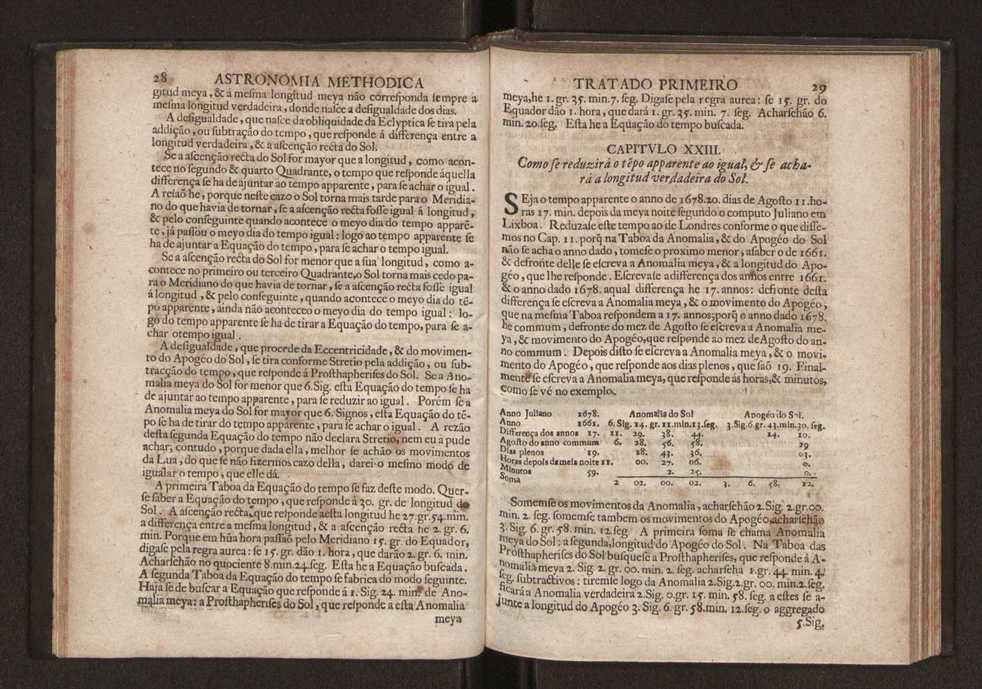 28 ASTRONOMIA METHODICA
gitud meya, & á mesma longitud meya não corresponda sempre a
mesma longitud verdadeira, donde nasce a desigualdade dos dias.
A desigualdade, que nasce da obliquidade da Eclyptica se tira pela
addição, ou subtração do tempo, que responde á differença entre a
longitud verdadeira, & a ascenção recta do Sol.
Se a ascenção recta do Sol for mayor que a longitud, como acon-
tece no segundo & quarto Quadrante, o tempo que responde áquella
differença se ha de ajuntar ao tempo apparente, para se achar o igual.
A resaõ he, porque neste cazo o Sol torna mais tarde para o Meridia-
no do que havia de tornar, se a ascenção recta fosse igual á longitud,
& pelo conseguinte quando acontece o meyo dia do tempo apparē-
te, já passou o meyo dia do tempo igual: logo ao tempo apparente se
ha de ajuntar a Equação do tempo, para se achar o tempo igual.
Se a ascenção recta do Sol for menor que a sua longitud, como a-
contece no primeiro ou terceiro Quadrante, o Sol torna mais cedo pa-
ra o Meridiano do que havia de tornar, se a ascenção recta fosse igual
á longitud, & pelo conseguinte, quando acontece o meyo dia do tē-
po apparente, ainda não aconteceo o meyo dia do tempo igual: lo-
go do tempo apparente se ha de tirar a Equação do tempo, para se a-
char o tempo igual.
A desigualdade, que procede da Eccentricidade, & do movimen-
to do Apogéo do Sol, se tira conforme Stretio pela addição, ou sub-
tracção do tempo, que responde á Prosthapherises do Sol. Se a Ano-
malia meya do Sol for menor que 6. Sig. esta Equação do tempo se ha
de ajuntar ao tempo apparente, para se reduzir ao igual. Porèm se a
Anomalia meya do Sol for mayor que 6. Signos, esta Equação do tē-
po se ha de tirar do tempo apparente, para se achar o igual. A rezão
desta segunda Equação do tempo não declara Stretio, nem eu a pude
achar; contudo, porque dada ella, melhor se achão os movimentos
da Lua, do que se não fizermos cazo della, darei o mesmo modo de
igualar o tempo, que elle dá.
A primeira Taboa da Equação do tempo se faz deste modo. Quer-
se saber a Equação do tempo, que responde á 30. gr. de longitud do
Sol. A ascenção recta, que responde a esta longitud he 27. gr. 54. min.
a differença entre a mesma longitud, & a ascenção recta he 2. gr. 6.
min. Porque em hũa hora passaõ pelo Meridiano 15. gr. do Equador,
digase pela regra aurea: se 15. gr. dão 1. hora, que darão 2. gr. 6. min.
Acharseha no quociente 8. min. 24. seg. Esta he a Equação buscada.
A segunda Taboa da Equação do tempo se fabrica do modo seguinte.
Haja se de buscar a Equação que responde á 1. Sig. 24. min. de Ano-
malia meya: a Prosthapherises do Sol, que responde a esta Anomalia
meya
TRATADO PRIMEIRO 29
meya, he 1. gr. 35. min. 7. seg. Digase pela regra aurea: se 15. gr. do
Equador dão 1. hora, que dará 1. gr. 35. min. 7. seg. Acharsehão 6.
min. 20. seg. Esta he a Equação do tempo buscada.
CAPITVLO XXIII.
Como se reduzirá o tēpo apparente ao igual, & se acha-
rá a longitud verdadeira do Sol.
SEja o tempo apparente o anno de 1678. 20. dias de Agosto 11. ho-
ras 17. min. depois da meya noite segundo o computo Juliano em
Lixboa. Reduzase este tempo ao de Londres conforme o que disse-
mos no Cap. 11. porq̃ na Taboa da Anomalia, & do Apogéo do Sol
não se acha o anno dado, tomese o proximo menor, a saber o de 1661.
& defronte delle se escreva a Anomalia meya, & a longitud do Apo-
géo, que lhe responde. Escrevase a differença dos annos entre 1661.
& o anno dado 1678. a qual differença he 17. annos: defronte desta
differença se escreva a Anomalia meya, & o movimento do Apogéo,
que na mesma Taboa respondem a 17. annos; porq̃ o anno dado 1678.
he commum, defronte do mez de Agosto se escreva a Anomalia me-
ya, & movimento do Apogéo, que responde ao mez de Agosto do an-
no commum. Depois disto se escreva a Anomalia meya, & o movi-
mento do Apogéo, que responde aos dias plenos, que saõ 19. Final-
mente se escreva a Anomalia meya, que responde ás horas, & minutos,
como se vé no exemplo.
Anno Juliano 1678. Anomalia do Sol Apogéo do Sol.
Anno 1661. 6. Sig. 14. gr. 11. min. 13. seg. 3. Sig. 6. gr. 43. min. 30. seg.
Differença dos annos 17. 11. 29. 38. 44. 14. 10.
Agosto do anno commum 6. 28. 56. 58. 29
Dias plenos 19. 18. 43. 36. 03.
Horas depois da meia noite 11. 00. 27. 06. 0.
Minutos 59. 2. 25. 0.
Soma 2 02. 00. 02. 3. 6. 58. 12.
Somemse os movimentos da Anomalia, acharsehão 2. Sig. 2. gr. 00.
min. 2. seg. somemse tambem os movimentos do Apogéo, acharsehão
3. Sig. 6. gr. 58. min. 12. seg. A primeira soma se chama Anomalia
meya do Sol: a segunda, longitud do Apogéo do Sol. Na Taboa das
Prosthapherises do Sol busquese a Prosthapherises, que responde á A-
nomalia meya 2. Sig. 2. gr. 00. min. 2. seg. acharseha 1. gr. 44. min. 4.
seg. subtractivos: tiremse logo da Anomalia 2. Sig. 2. gr. 00. min. 2. seg.
ficará a Anomalia verdadeira 2. Sig. 0. gr. 15. min. 58. seg. a estes se a-
junte a longitud do Apogéo 3. Sig. 6. gr. 58. min. 12. seg. o aggregado
5. Sig.